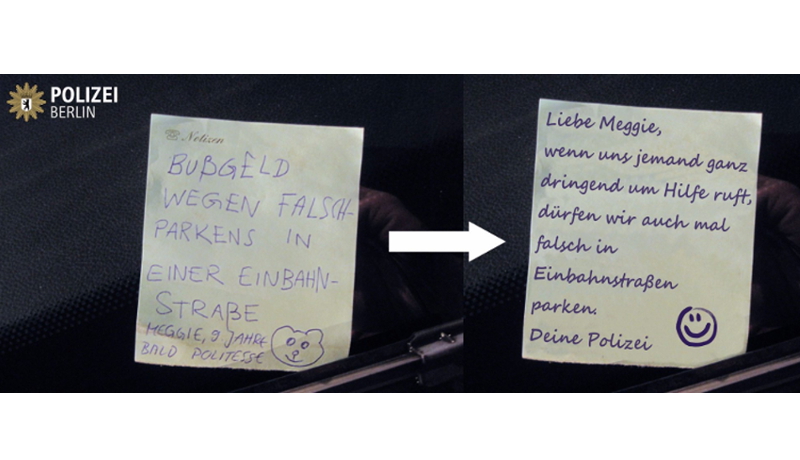 POLIZEI
BERLIN
Notizen
BUßGELD
WEGEN FALSCH-
PARKENS IN
EINER EINBAHN-
STRAßE
MEGGIE, 9 JAHRE
BALD POLITESSE
Liebe Meggie,
wenn uns jemand ganz
dringend um Hilfe ruft,
dürfen wir auch mal
falsch in
Einbahnstraßen
parken.
Deine Polizei